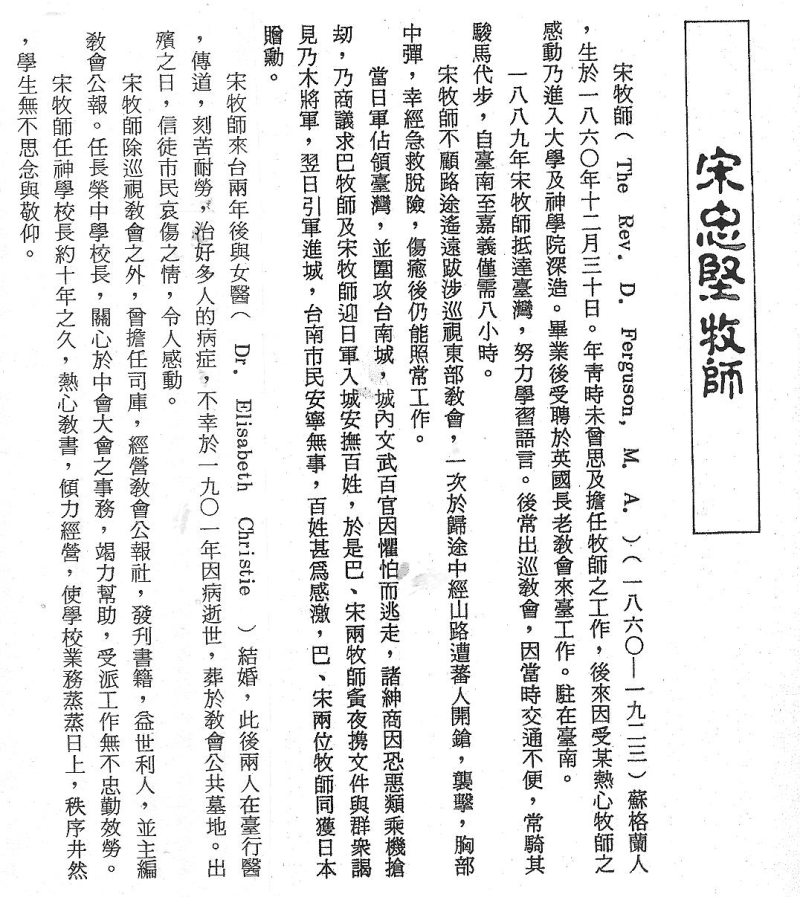 宋忠堅牧師
宋牧師( The Rev. D. Ferguson, M. A. )(一八六〇—一九二三)蘇格蘭人
，生於一八六〇年十二月三十日。年青時未曾思及擔任牧師之工作，後來因受某熱心牧師之
感動乃進入大學及神學院深造。畢業後受聘於英國長老教會來臺工作。駐在臺南。
一八八九年宋牧師抵達臺灣，努力學習語言。後常出巡教會，因當時交通不便，常騎其
駿馬代步，自臺南至嘉義僅需八小時。
宋牧師不顧路途遙遠跋涉巡視東部教會，一次於歸途中經山路遭蕃人開鎗，襲擊，胸部
中彈，幸經急救脫險，傷癒後仍能照常工作。
當日軍佔領臺灣，並圍攻台南城，城內文武百官因懼怕而逃走，諸紳商因恐惡類乘機搶
刼，乃商議求巴牧師及宋牧師迎日軍入城安撫百姓，於是巴、宋兩牧師夤夜携文件與群衆謁
見乃木將軍，翌日引軍進城，台南市民安寧無事，百姓甚爲感激，巴、宋兩位牧師同獲日本
贈勳。
宋牧師來台兩年後與女醫( Dr. Elisabeth Christie )結婚，此後兩人在臺行醫
，傳道，刻苦耐勞，治好多人的病症，不幸於一九〇一年因病逝世，葬於教會公共墓地。出
殯之日，信徒市民哀傷之情，令人感動。
宋牧師除巡視教會之外，曾擔任司庫，經營教會公報社，發刋書籍，益世利人，並主編
教會公報。任長榮中學校長，關心於中會大會之事務，竭力幫助，受派工作無不忠勤效勞。
宋牧師任神學校長約十年之久，熱心教書，傾力經營，使學校業務蒸蒸日上，秩序井然
，學生無不思念與敬仰。